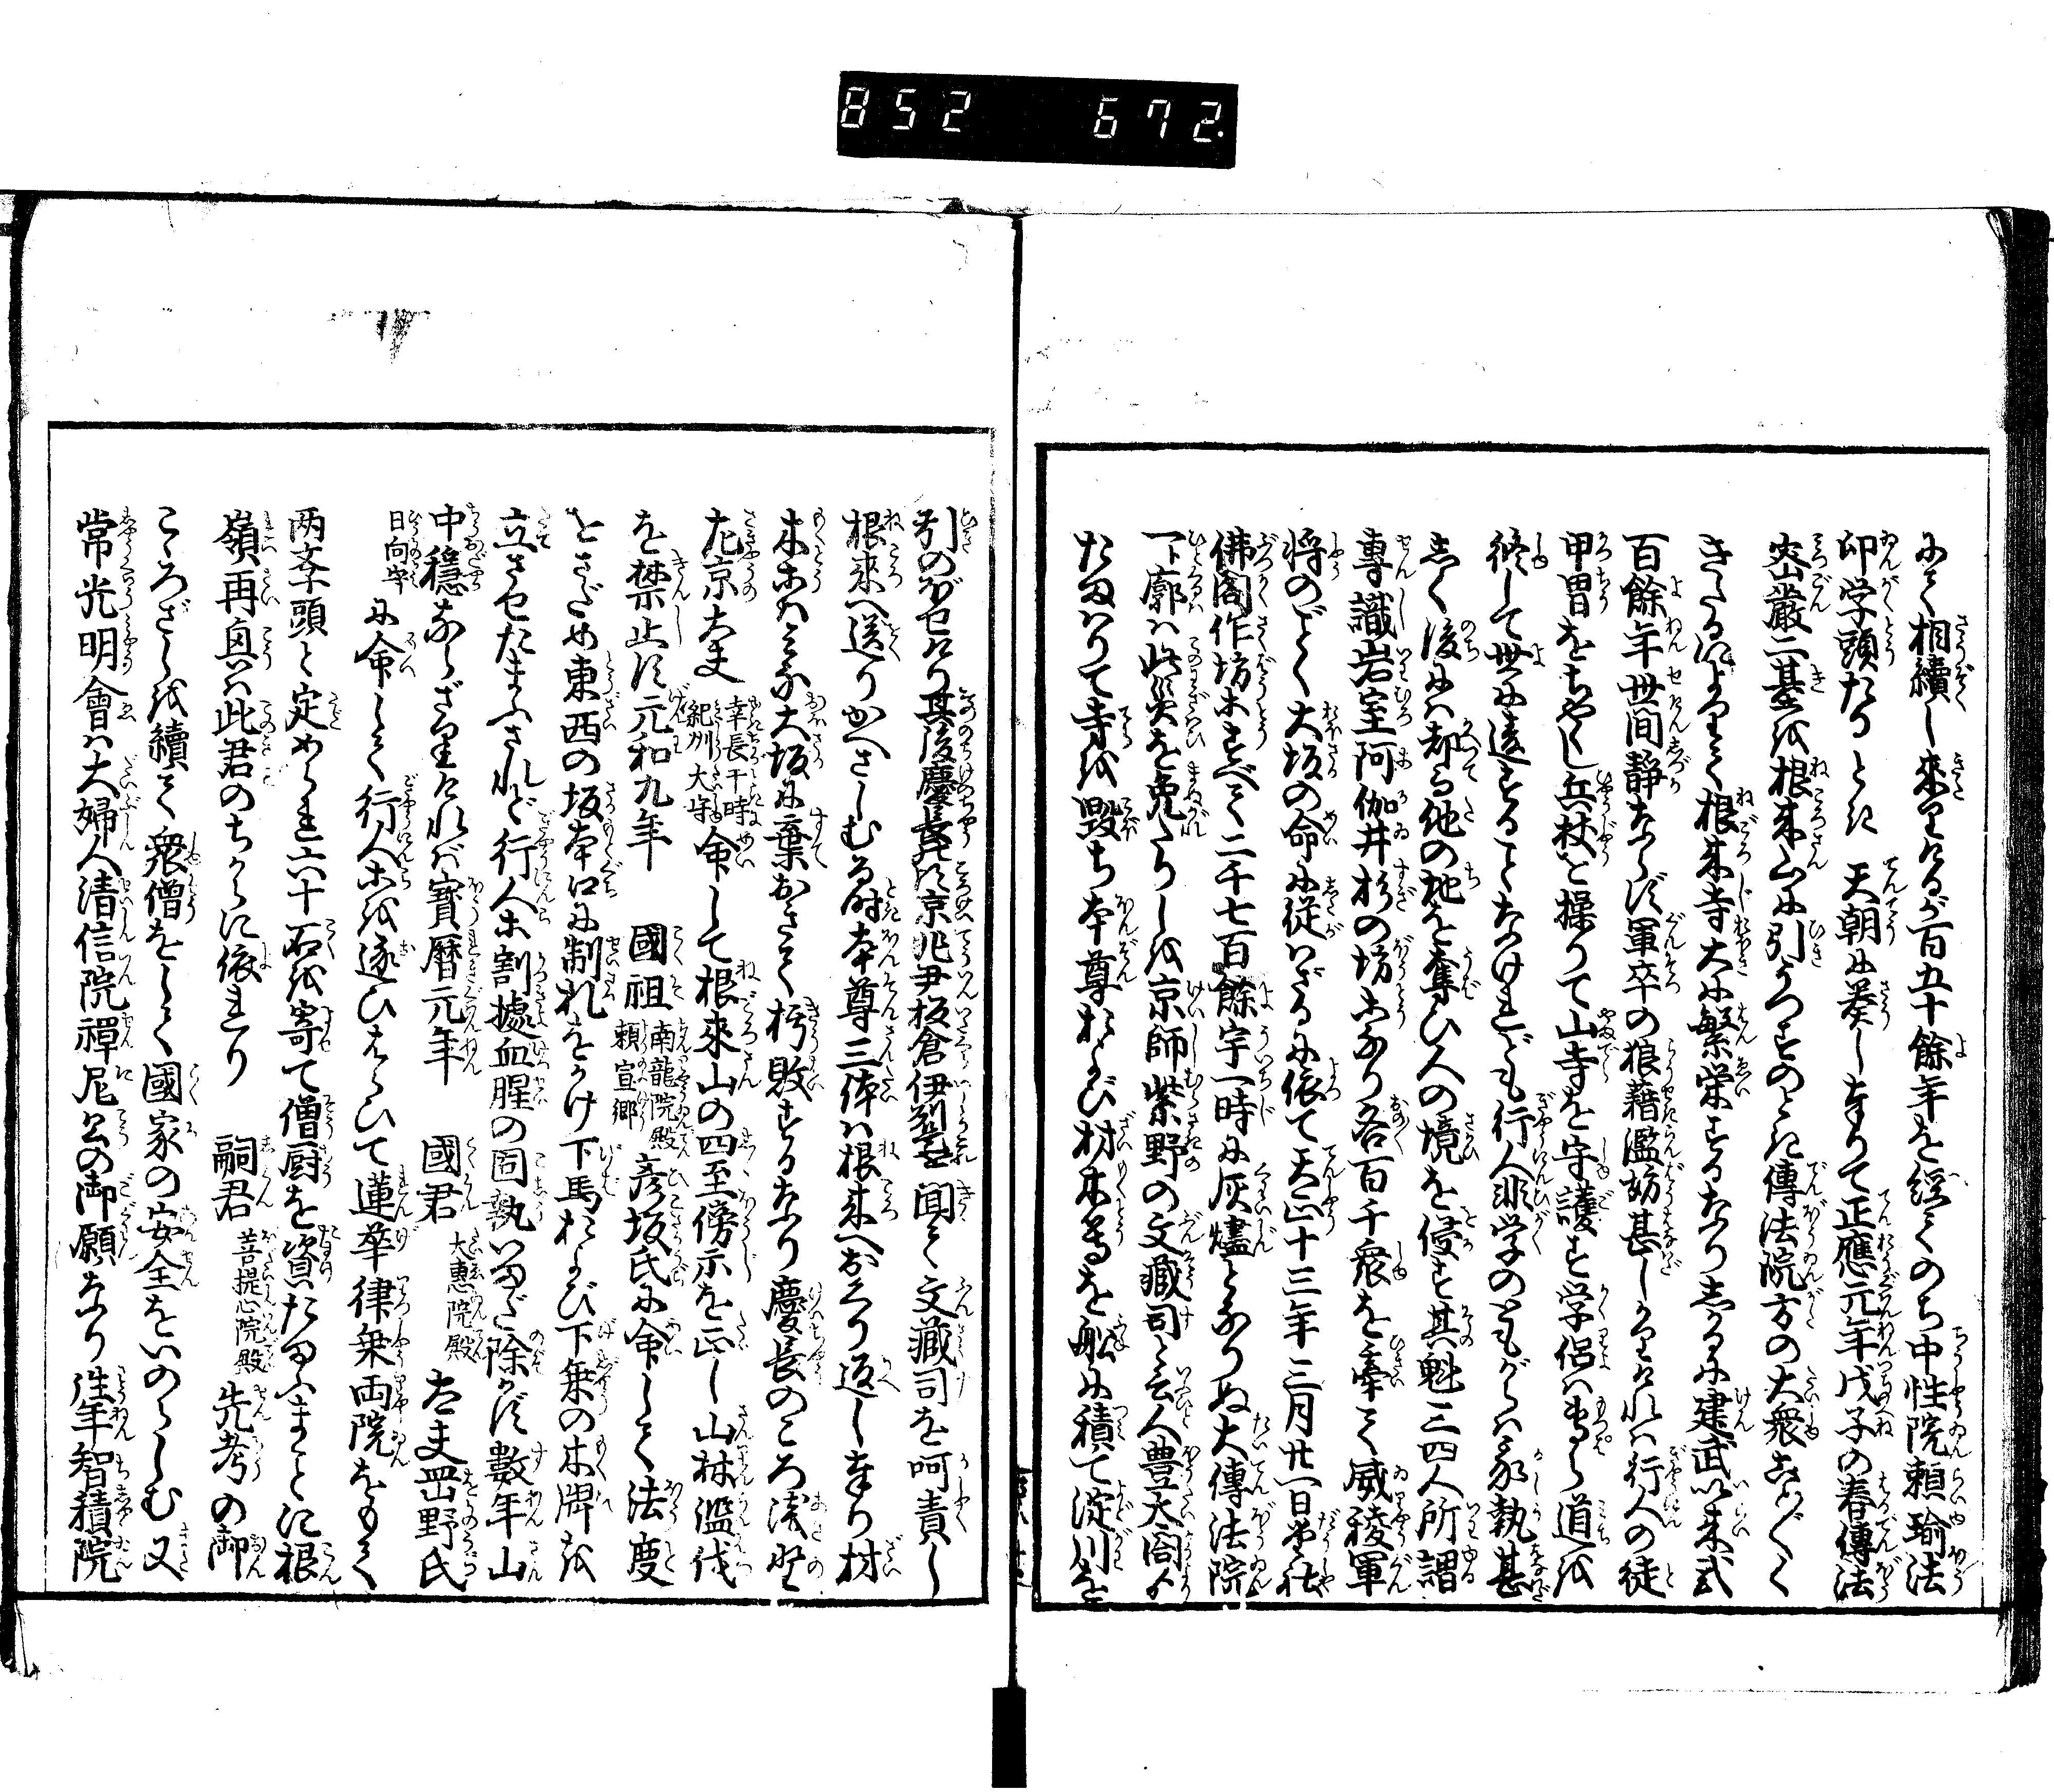 852 672.
にて相續し来りけるが百五十餘年を経てのち中性院頼瑜法
印学頭たりとき 天朝に奏し奉りて正應元年戊子の春傳法
密嚴二基を根来山に引うつすのとき傳法院方の大衆ことごとく
きたるによりて根来寺大に繁栄するなりしかるに建武以来弐
百餘年世间静ならず軍卒の狼藉濫妨甚しかりければ行人の徒
甲冑をちやくし兵杖を操りて山寺を守護す学侶は専ら道を
修して世に遠することなけれども行人非学のともがらは我執甚
しく後には却て他の地を奪ひ人の境を侵す其魁三四人所謂
専識岩室阿伽井杉の坊等なり各百千衆を牽て威稜軍
将のごとく大坂の命に従はざるに依て天正十三年三月廿一日堂社
佛閣作坊等すべて二千七百餘宇一時に灰燼となりぬ大傳法院
一廓は此災を免たりしを京師紫野の文蔵司と云人豊太閤より
たまはりて寺を毀ち本尊および材木等を船に積て淀川を
引のぼせけり其後慶長に京兆尹板倉伊賀守是を聞て文蔵司を呵責し
根来へ送りかへさしむる時本尊三体は根来へおくり返し奉り材
木等はみな大坂に棄おきて朽敗するなり慶長のころ浅野
左京大夫 幸長于時紀州大守 命して根来山の四至傍示を正し山林濫伐
を禁止す元和九年 國祖 南龍院殿頼宣卿 彦坂氏に命して法度
をさだめ東西の坂本口に制札をかけ下馬および下乗の木牌を
立させたまふされど行人等割據血腥の固執いまだ除かず數年山
中穏ならざりければ寶暦元年 國君 大惠院殿 大夫岡野氏
日向守 に命して行人等を逐ひはらひて蓮華律乗両院をもて
両学頭と定められ六十石を寄て僧厨を資たまふまことに根
嶺再興は此君のちからに依れり 嗣君 菩提心院殿 先考の御
こゝろざしを續て衆僧をして國家の安全をいのらしむ又
常光明會は大婦人清信院禪尼公の御願なり往年智積院